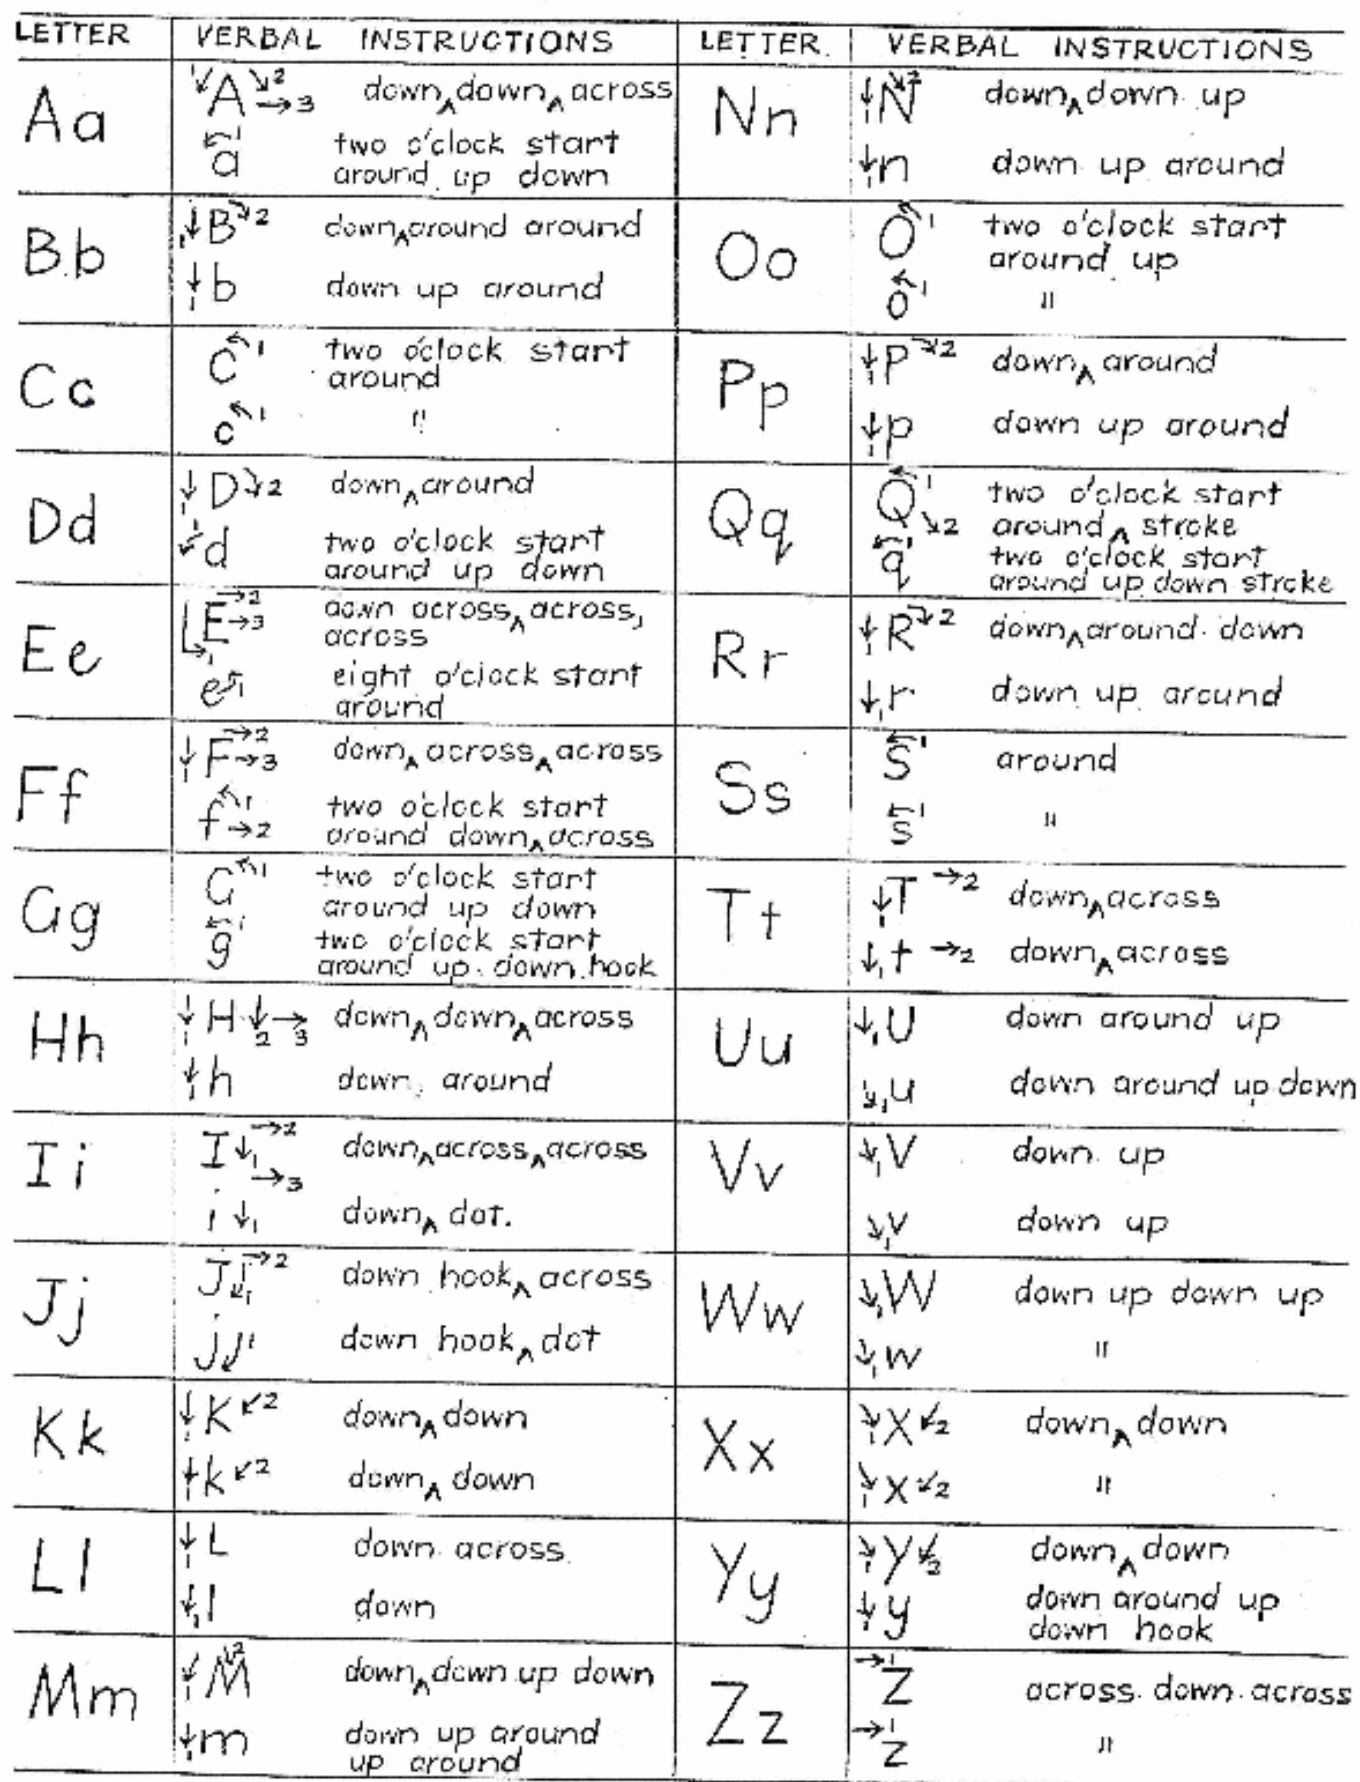 LETTER VERBAL INSTRUCTIONS
Aa
1 A 2 3 down ^ down ^ across
a 1 two o'clock start
around up down
B.b
1 B 2 down ^ around around
1 b down up around
Cc
C 1 two o'clock start
around
c 1 "
Dd
1 D 2 down ^ around
1 d two o'clock start
around up down
Ee
1 E 2 3 down across ^ across,
across
e 1 eight o'clock start
around
Ff
1 F 2 3 down ^ across ^ across
f 1 2 two o'clock start
around down ^ across
Gg
G 1 two o'clock start
around up down
g 1 two o'clock start
around up. down. hook
Hh
1 H 2 3 down ^ down ^ across
1 h down, around
Ii
I 1 2 3 down ^ across ^ across
i 1 down ^ dot.
Jj
J 1 2 down hook ^ across
j 1 down hook ^ dot
Kk
1 K 2 down ^ down
1 k 2 down ^ down
Ll
1 L down. across.
1 l down
Mm
1 M 2 down ^ down up down
1 m down up around
up around
LETTER. VERBAL INSTRUCTIONS
Nn
1 N 2 down ^ down up
1 n down up around
Oo
O 1 two o'clock start
around up
o 1 "
Pp
1 P 2 down ^ around
1 p down up around
Qq
Q 1 2 two o'clock start
around ^ stroke
q 1 two o'clock start
around up down stroke
Rr
1 R 2 down ^ around. down
1 r down up around
Ss
S 1 around
s 1 "
Tt
1 T 2 down ^ across
1 t 2 down ^ across
Uu
1 U down around up
1 u down around up down
Vv
1 V down. up
1 v down up
Ww
1 W down up down up
1 w "
Xx
1 X 2 down ^ down
1 x 2 "
Yy
1 Y 2 down ^ down
1 y down around up
down hook
Zz
1 Z across. down. across
1 z "